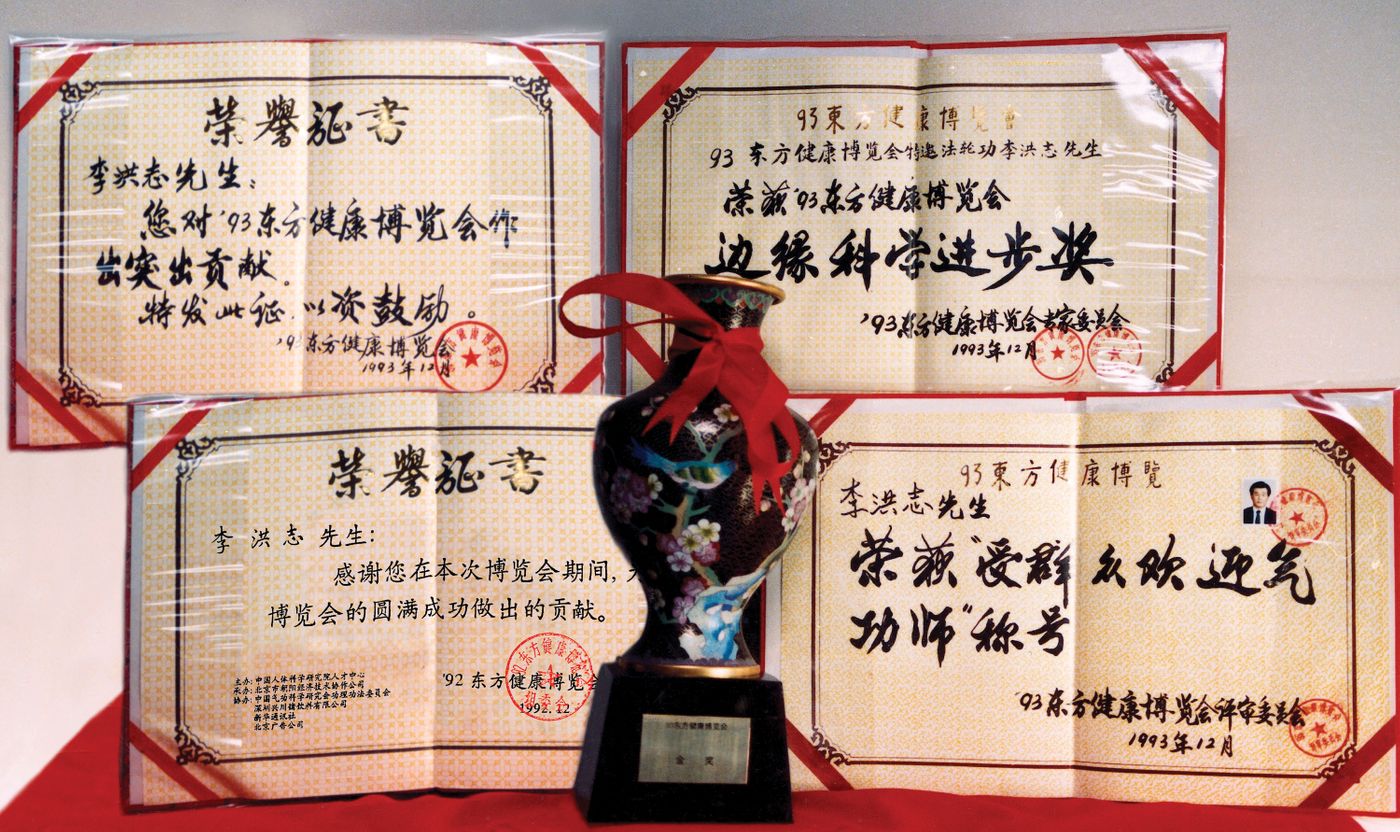 荣誉证书
李洪志先生：
您对'93东方健康博览会作
出突出贡献。
特发此证．以资鼓励。
'93东方健康博览会
1993年12月
93東方健康博覽會
93 东方健康博览会特邀法轮功李洪志先生
荣获'93东方健康博览会
边缘科学进步奖
'93东方健康博览会专家委员会
1993年12月
荣誉证书
李洪志 先生：
感谢您在本次博览会期间，
博览会的圆满成功做出的贡献。
主办：中国人体科学研究院人才中心
承办：北京市朝阳经济技术协作公司
协办：中国气功科学研究会功理功法委员会
新华通讯社
北京广告公司
'92 东方健康博览会
1992.12
93東方健康博覽
李洪志先生
荣获“受群众欢迎气
功师”称号
'93东方健康博览会评审委员会
1993年12月
93东方健康博览会
金奖